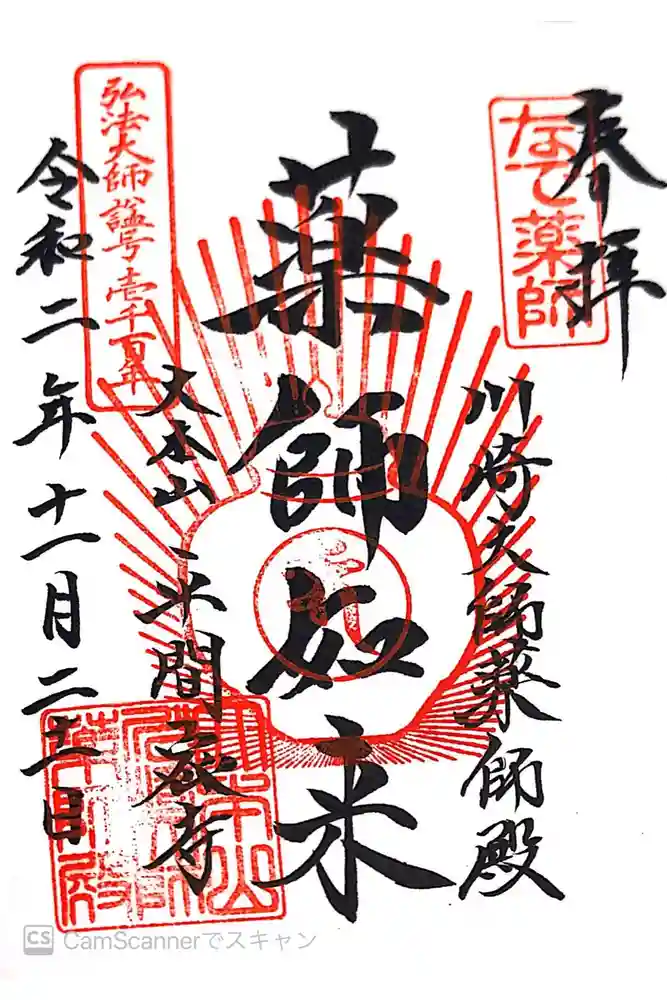 奉拝
なで薬師
川崎大師薬師殿
薬師如来
大本山 平間寺
弘法大師諡号壱千百年
令和二年十一月二十二日
CS CamScannerでスキャン